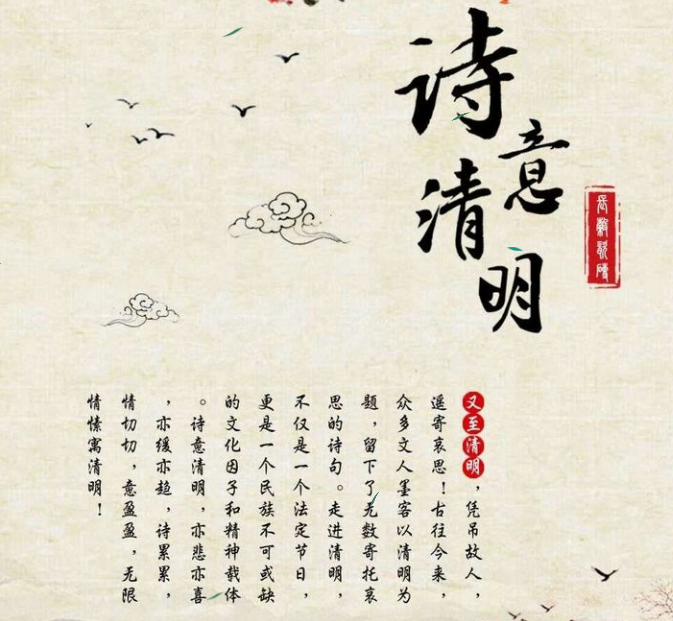 诗意清明
又至清明，凭吊故人，
遥寄哀思！古往今来，
众多文人墨客以清明为
题，留下了无数寄托哀
思的诗句。走进清明，
不仅是一个法定节日，
更是一个民族不可或缺
的文化因子和精神载体
。诗意清明，亦悲亦喜
，亦缓亦趋，诗累累，
情切切，意盈盈，无限
情愫寓清明！